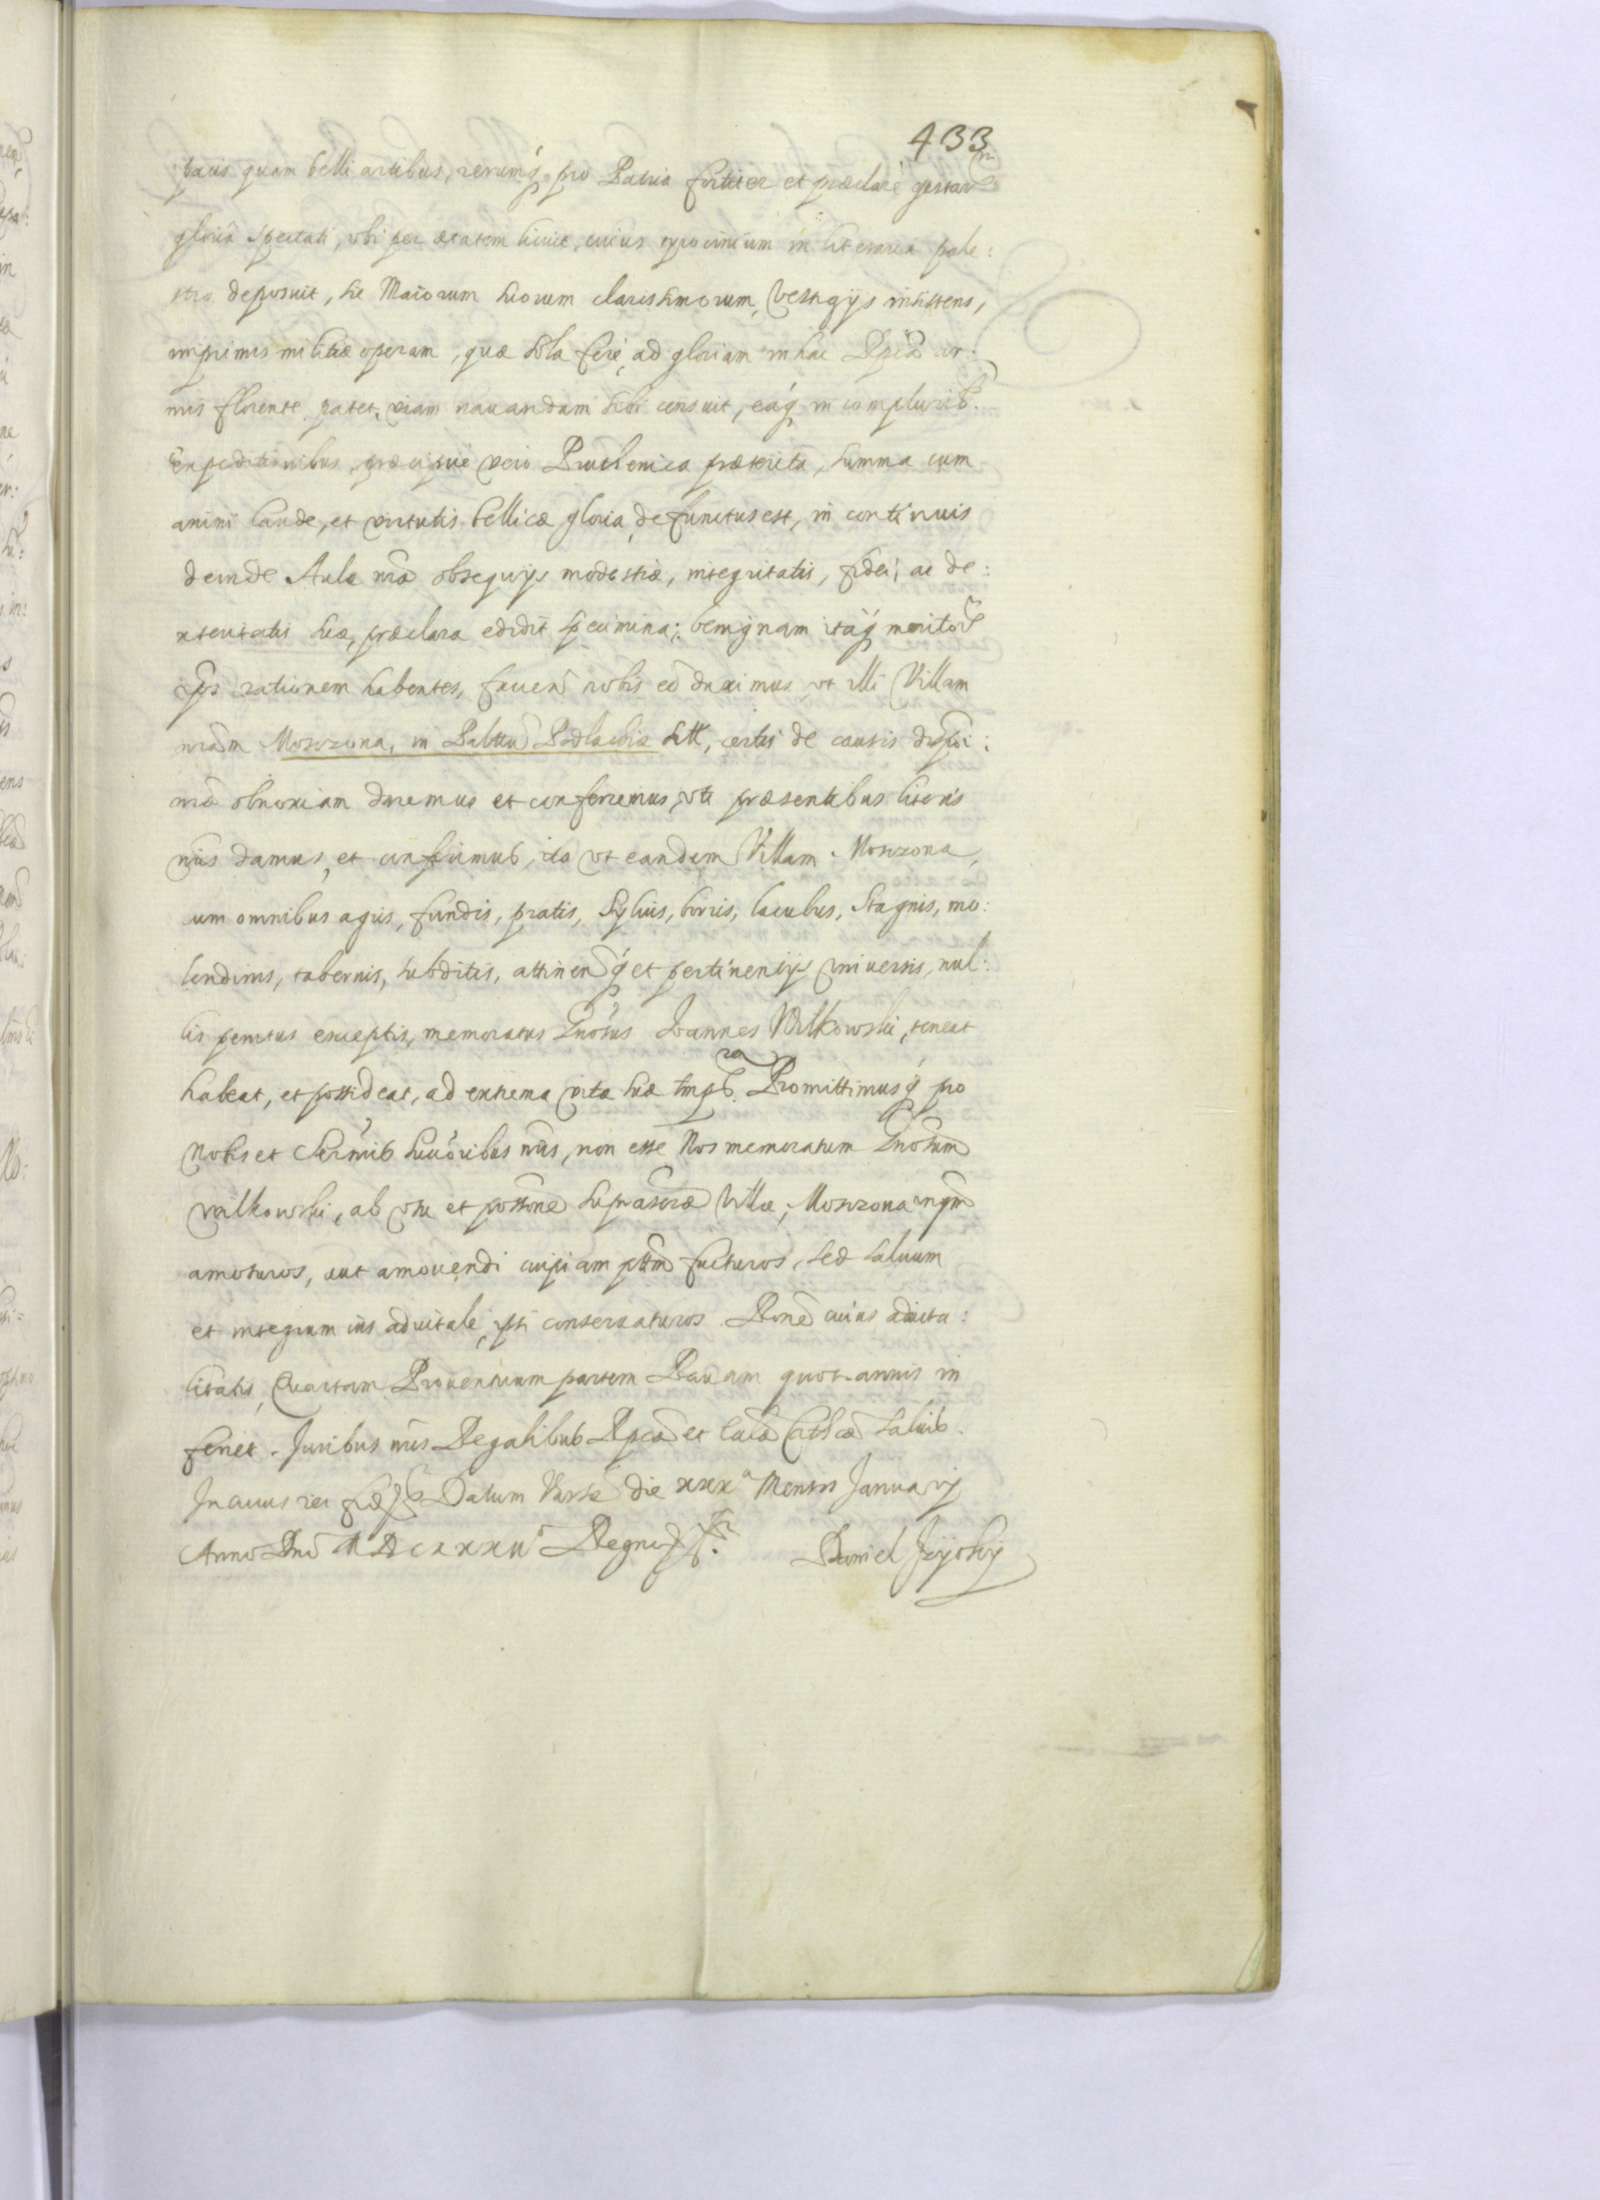 433
pacis quam belli artibus, rerumq́ pro Patria fortiter et præclarè gestar
gloria spectati, vbi per ætatem licuit, cuius tyrocinium in literaria pale:
stra deposuit, se Maiorum suorum clarissimorum, vestigijs insistens,
imprimis militiæ operam, quæ sola ferè, ad gloriam in hac Rpca ar:
mis florente patet, viam nauandam sibi censuit, eaq́ in complurib.
expeditionibus, præcipuè vero Pruthenica præterita, summa cum
animi laude, et virtutis bellicæ gloria defunctus est, in continuis
deinde Aulæ nræ obsequijs modestiæ, integritatis, fidei, ac de:
xteritatis suæ, præclara edidit specimina; benignam itaq́ meritor
rationem habentes, nobis eò duximus, vt illi Villam
nram Mosrzona, in Palttu Podlachiæ sitt, certis de causis
nræ obnoxiam daremus et conferremus, vti præsentibus literis
nris damus, et conferimus, ita vt eandem Villam Mosrzona,
cum omnibus agris, fundis, pratis, syluis, borris, lacubus, stagnis, mo:
lendinis, tabernis, subditis, attinen q́ et pertinentijs vniuersis, nul:
lis penitus exceptis, memoratus Gnosus Joannes Wilkowski, teneat
habeat, et possideat, ad extrema vitæ suæ tmpra. Promittimusq́ pro
Nobis et Sermis succoribus nris, non esse Nos memoratum Gnosum
Wilkowski, ab vsu et possone suprascræ Villæ, Mosrzona nqm
amoturos, aut amouendi cuipiam pttm facturos, sed saluum
et integrum ius aduitale, ipsi conseruaturos. Rone cuius aduita:
litatis, Quartam Prouentuum partem Rauam quot-annis in
feret. Juribus nris Regalibus Rpcæ et Ecclæ Cathcæ saluis.
In cuius rei fid Datum Varsæ die xxxª Mensis Januarij
Anno Dni MDCXXXIIº Regnor